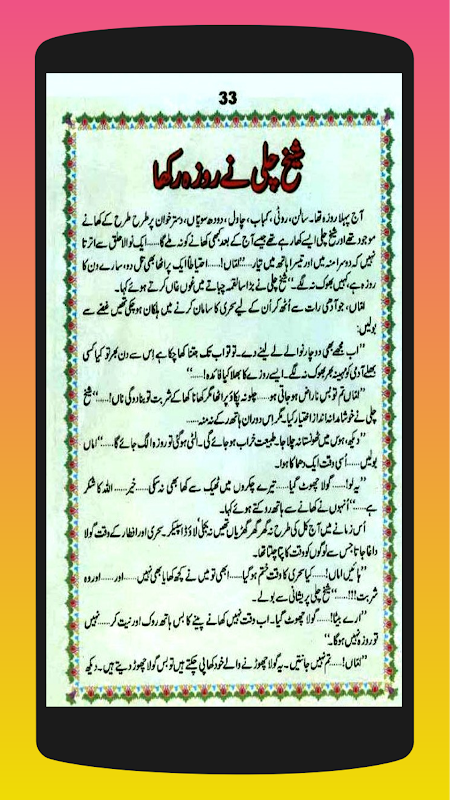 33
شیخ چلی نے روزہ رکھا
آج پہلا روزہ تھا۔ سالن، روٹی، کباب، چاول، دودھ سویّاں، دسترخوان پر طرح طرح کے کھانے
موجود تھے اور شیخ چلی ایسے کھا رہے تھے جیسے آج کے بعد کبھی کھانے کو نہ ملے گا......ایک نوالا حلق سے اترتا
نہیں کہ دوسرا منہ میں اور تیسرا ہاتھ میں تیار......"امّاں!......احتیاطاً ایک پراٹھا بھی تل دو، سارے دن کا
روزہ ہے کہیں بھوک نہ لگے۔" شیخ چلی نے بڑا سا لقمہ چباتے میں غوں غاں کرتے ہوئے کہا۔
امّاں، جو آدھی رات سے اُٹھ کر اُن کے لیے سحری کا سامان کرنے میں ہلکان ہو چکی تھیں غصّے سے
بولیں:
"اب مجھے بھی دو چار نوالے لے لینے دے۔ تو تو اب تک جتنا کھا چکا ہے اِس سے دن بھر تو کیا کسی
بھلے آدمی کو مہینہ بھر بھوک نہ لگے۔ ایسے روزے کا بھلا کیا فائدہ!......"
"امّاں تم تو بس ناراض ہو جاتی ہو......چلو نہ پکاؤ پراٹھا مگر کھانا کھا کے شربت تو بنا دو گی ناں!......" شیخ
چلی نے خوشامدانہ انداز اختیار کیا۔ مگر اس دوران ہاتھ رکے نہ منہ......
"دیکھ، ہوں میں ٹھونستا نہ چلا جا۔ طبیعت خراب ہو جائے گی۔ اُلٹی ہو گئی تو روزہ الگ جائے گا......" اماں
بولیں......اُسی وقت ایک دھماکا ہوا۔
"یہ لو!......گولا چھوٹ گیا......تیرے چکروں میں ٹھیک سے کھا بھی نہ سکی......خیر......اللہ کا شکر
ہے......" اُنہوں نے کھانے سے ہاتھ روکتے ہوئے کہا۔
اُس زمانے میں آج کل کی طرح نہ گھر گھر گھڑیاں تھیں نہ بجلی لاؤڈ اسپیکر۔ سحری اور افطار کے وقت گولا
داغا جاتا جس سے لوگوں کو وقت کا پتا چلتا تھا۔
"ہائیں اماں!......کیا سحری کا وقت ختم ہو گیا......ابھی تو میں نے کچھ کھایا بھی نہیں......اور......اور وہ
شربت!!!......" شیخ چلی پریشانی سے بولے۔
"ارے بیٹا!......گولا چھوٹ گیا۔ اب وقت نہیں کھانے پینے کا بس ہاتھ روک اور نیت کر......نہیں
تو روزہ نہیں ہوگا۔"
"امّاں!......تم نہیں جانتیں۔ یہ گولا چھوڑنے والے خود کھا پی چکتے ہیں تو بس گولا چھوڑ دیتے ہیں۔ دیکھ